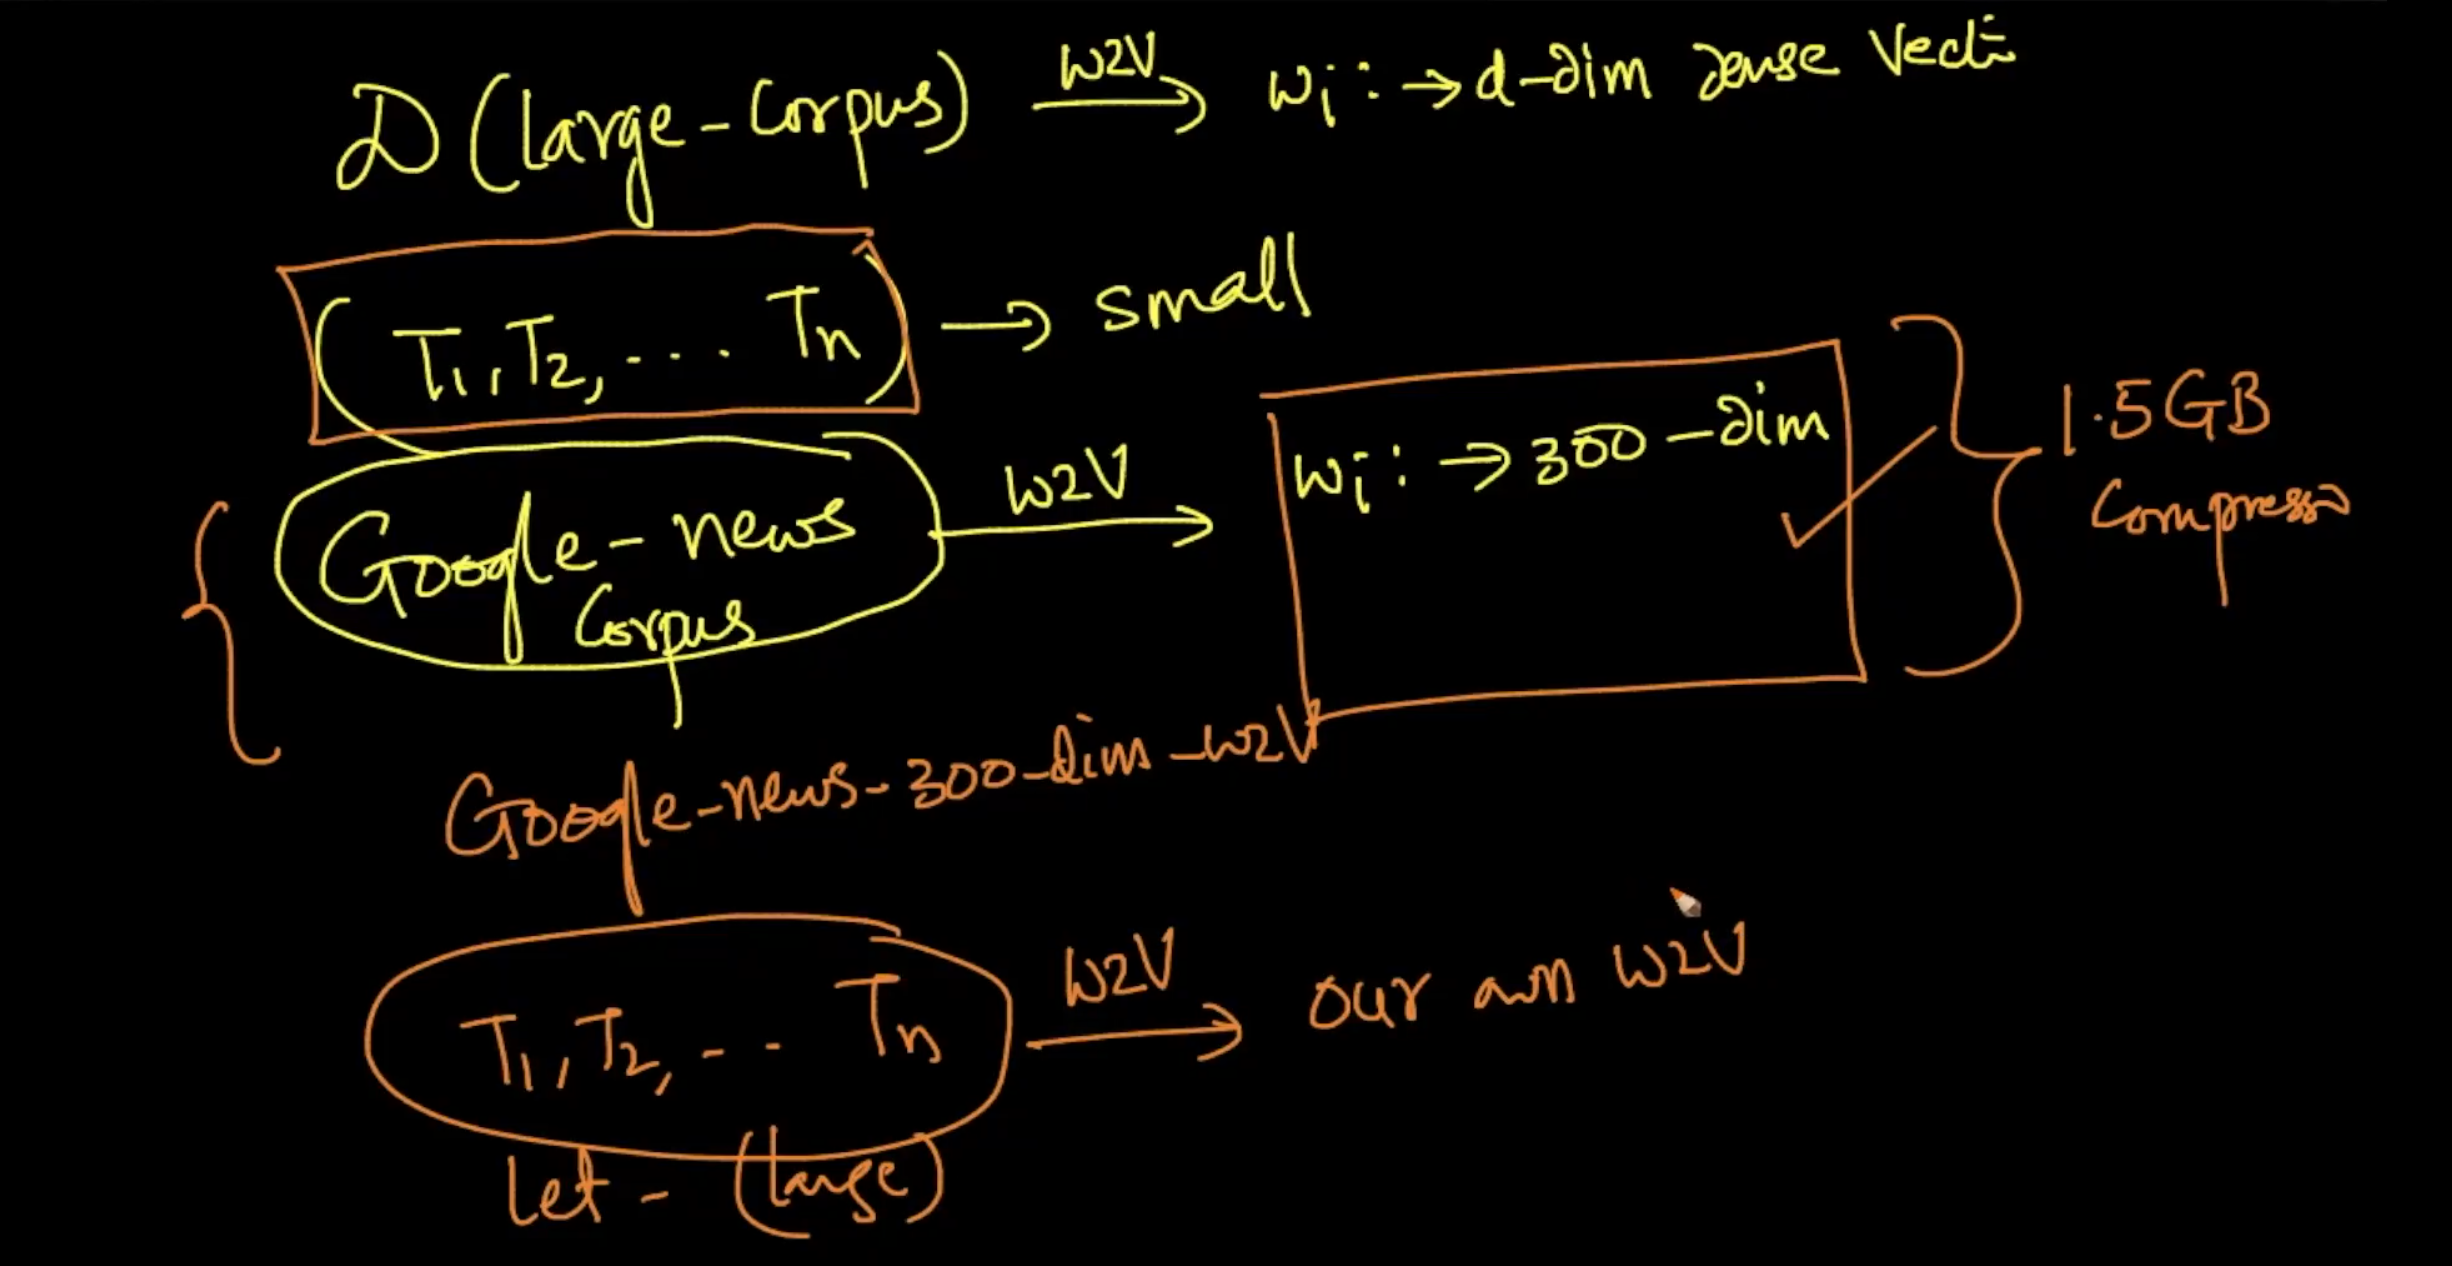 D (large-corpus) W2V → wi: → d-dim dense vect
(T1, T2, .... Tn) → small
Google-news corpus W2V → wi: → 300-dim
1.5GB
compress
Google-news-300-dim-W2V
T1, T2, --- Tn W2V → our own W2V
let - (large)